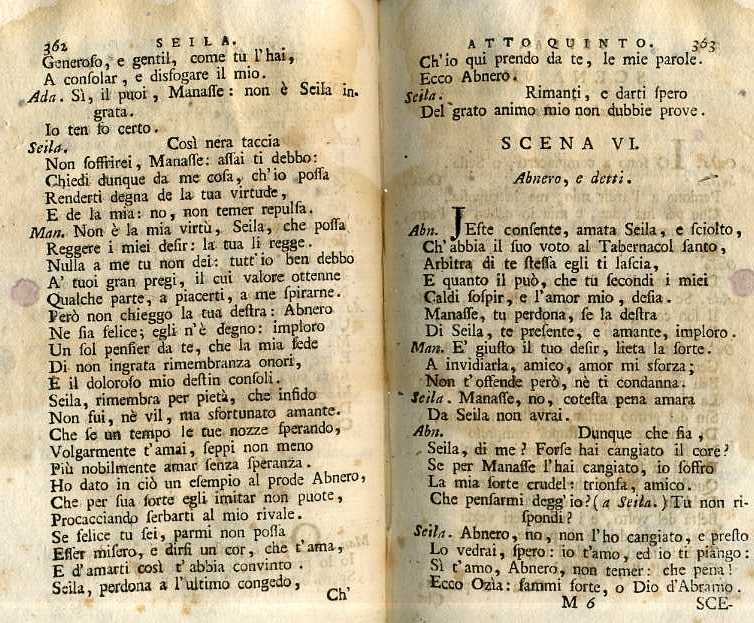 362 SEILA.
Generoſo, e gentil, come tu l'hai,
A conſolar, e disfogare il mio.
Ada. Sì, il puoi, Manaſſe: non è Seila in-
grata.
Io ten fo certo.
Seila. Così nera taccia
Non ſoffrirei, Manaſſe: aſſai ti debbo:
Chiedi dunque da me coſa, ch'io poſſa
Renderti degna de la tua virtude,
E de la mia: no, non temer repulſa.
Man. Non è la mia virtù, Seila, che poſſa
Reggere i miei deſir: la tua li regge.
Nulla a me tu non dei: tutt'io ben debbo
A' tuoi gran pregi, il cui valore ottenne
Qualche parte, a piacerti, a me ſpirarne.
Però non chieggo la tua deſtra: Abnero
Ne ſia felice; egli n'è degno: imploro
Un ſol penſier da te, che la mia fede
Di non ingrata rimembranza onori,
E il doloroſo mio deſtin conſoli.
Seila, rimembra per pietà, che infido
Non fui, nè vil, ma sfortunato amante.
Che ſe un tempo le tue nozze ſperando,
Volgarmente t'amai, ſeppi non meno
Più nobilmente amar ſenza ſperanza.
Ho dato in ciò un eſempio al prode Abnero,
Che per ſua ſorte egli imitar non puote,
Procacciando ſerbarti al mio rivale.
Se felice tu ſei, parmi non poſſa
Eſſer miſero, e dirſi un cor, che t'ama,
E d'amarti così t'abbia convinto.
Seila, perdona a l'ultimo congedo,
Ch'
ATTO QUINTO. 363
Ch'io qui prendo da te, le mie parole.
Ecco Abnero.
Seila. Rimanti, e darti ſpero
Del grato animo mio non dubbie prove.
SCENA VI.
Abnero, e detti.
Abn. JEfte conſente, amata Seila, e ſciolto,
Ch'abbia il ſuo voto al Tabernacol ſanto,
Arbitra di te ſteſſa egli ti laſcia,
E quanto il può, che tu ſecondi i miei
Caldi ſoſpir, e l'amor mio, deſia.
Manaſſe, tu perdona, ſe la deſtra
Di Seila, te preſente, e amante, imploro.
Man. E' giuſto il tuo deſir, lieta la ſorte.
A invidiarla, amico, amor mi sforza;
Non t'offende però, nè ti condanna.
Seila. Manaſſe, no, coteſta pena amara
Da Seila non avrai.
Abn. Dunque che fia,
Seila, di me? Forſe hai cangiato il core?
Se per Manaſſe l'hai cangiato, io ſoffro
La mia ſorte crudel: trionfa, amico.
Che penſarmi degg'io? (a Seila.) Tu non ri-
ſpondi?
Seila. Abnero, no, non l'ho cangiato, e preſto
Lo vedrai, ſpero: io t'amo, ed io ti piango:
Sì t'amo, Abnero, non temer: che pena!
Ecco Ozìa: fammi forte, o Dio d'Abramo.
M 6 SCE-